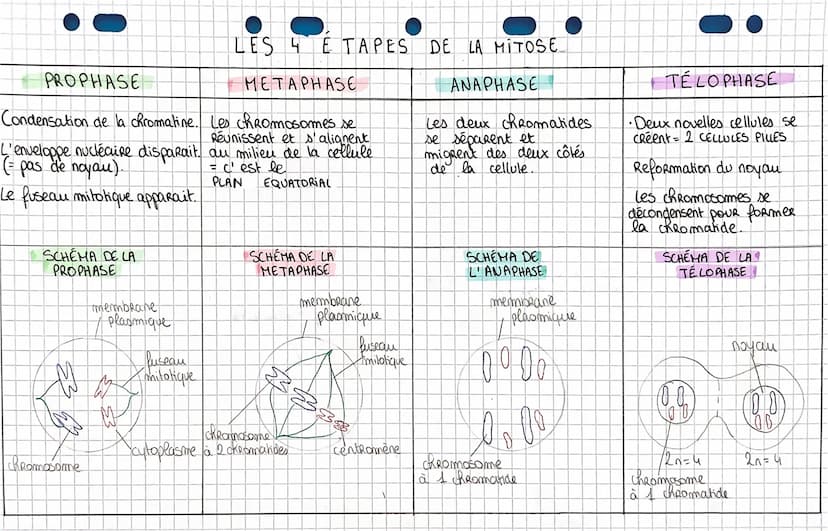 LES 4 ÉTAPES DE LA MITOSE
PROPHASE
Condensation de la chromatine.
L'enveloppe nucléaire disparait.
(= pas de noyau).
Le fuseau mitotique apparait.
SCHÉMA DE LA
PROPHASE
membrane
plasmique
fuseau
mitotique
cytoplasme
chromosome
METAPHASE
Les chromosomes se
réunissent et s'alignent
au milieu de la cellule
= c'est le
PLAN EQUATORIAL
SCHÉMA DE LA
METAPHASE
membrane
plasmique
fuseau
mitotique
chromosome
à 2 chromatides
centromère
ANAPHASE
Les deux chromatides
se séparent et
migrent des deux côtés
de la cellule.
SCHÉMA DE
L'ANAPHASE
membrane
plasmique
chromosome
à 1 chromatide
TÉLOPHASE
· Deux novelles cellules se
créent = 2 CELLULES FILLES
Reformation du noyau
Les chromosomes se
décondensent pour former
la chromatide.
SCHÉMA DE LA
TÉLOPHASE
noyau
2n=4
2n=4
chromosome
à 1 chromatide